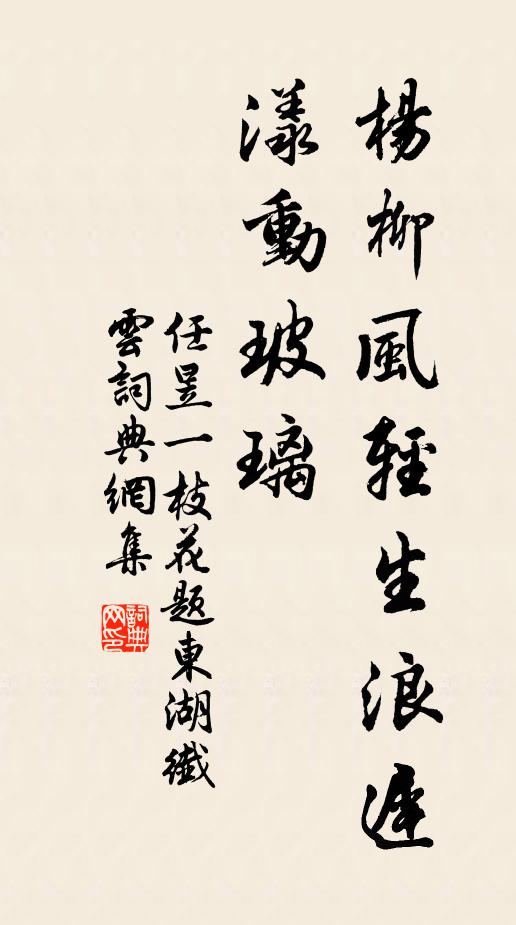 楊柳風輕生浪遲
漾動玻璃
任昱一枝花題東湖纖
雲詞典網集
詞典
网印